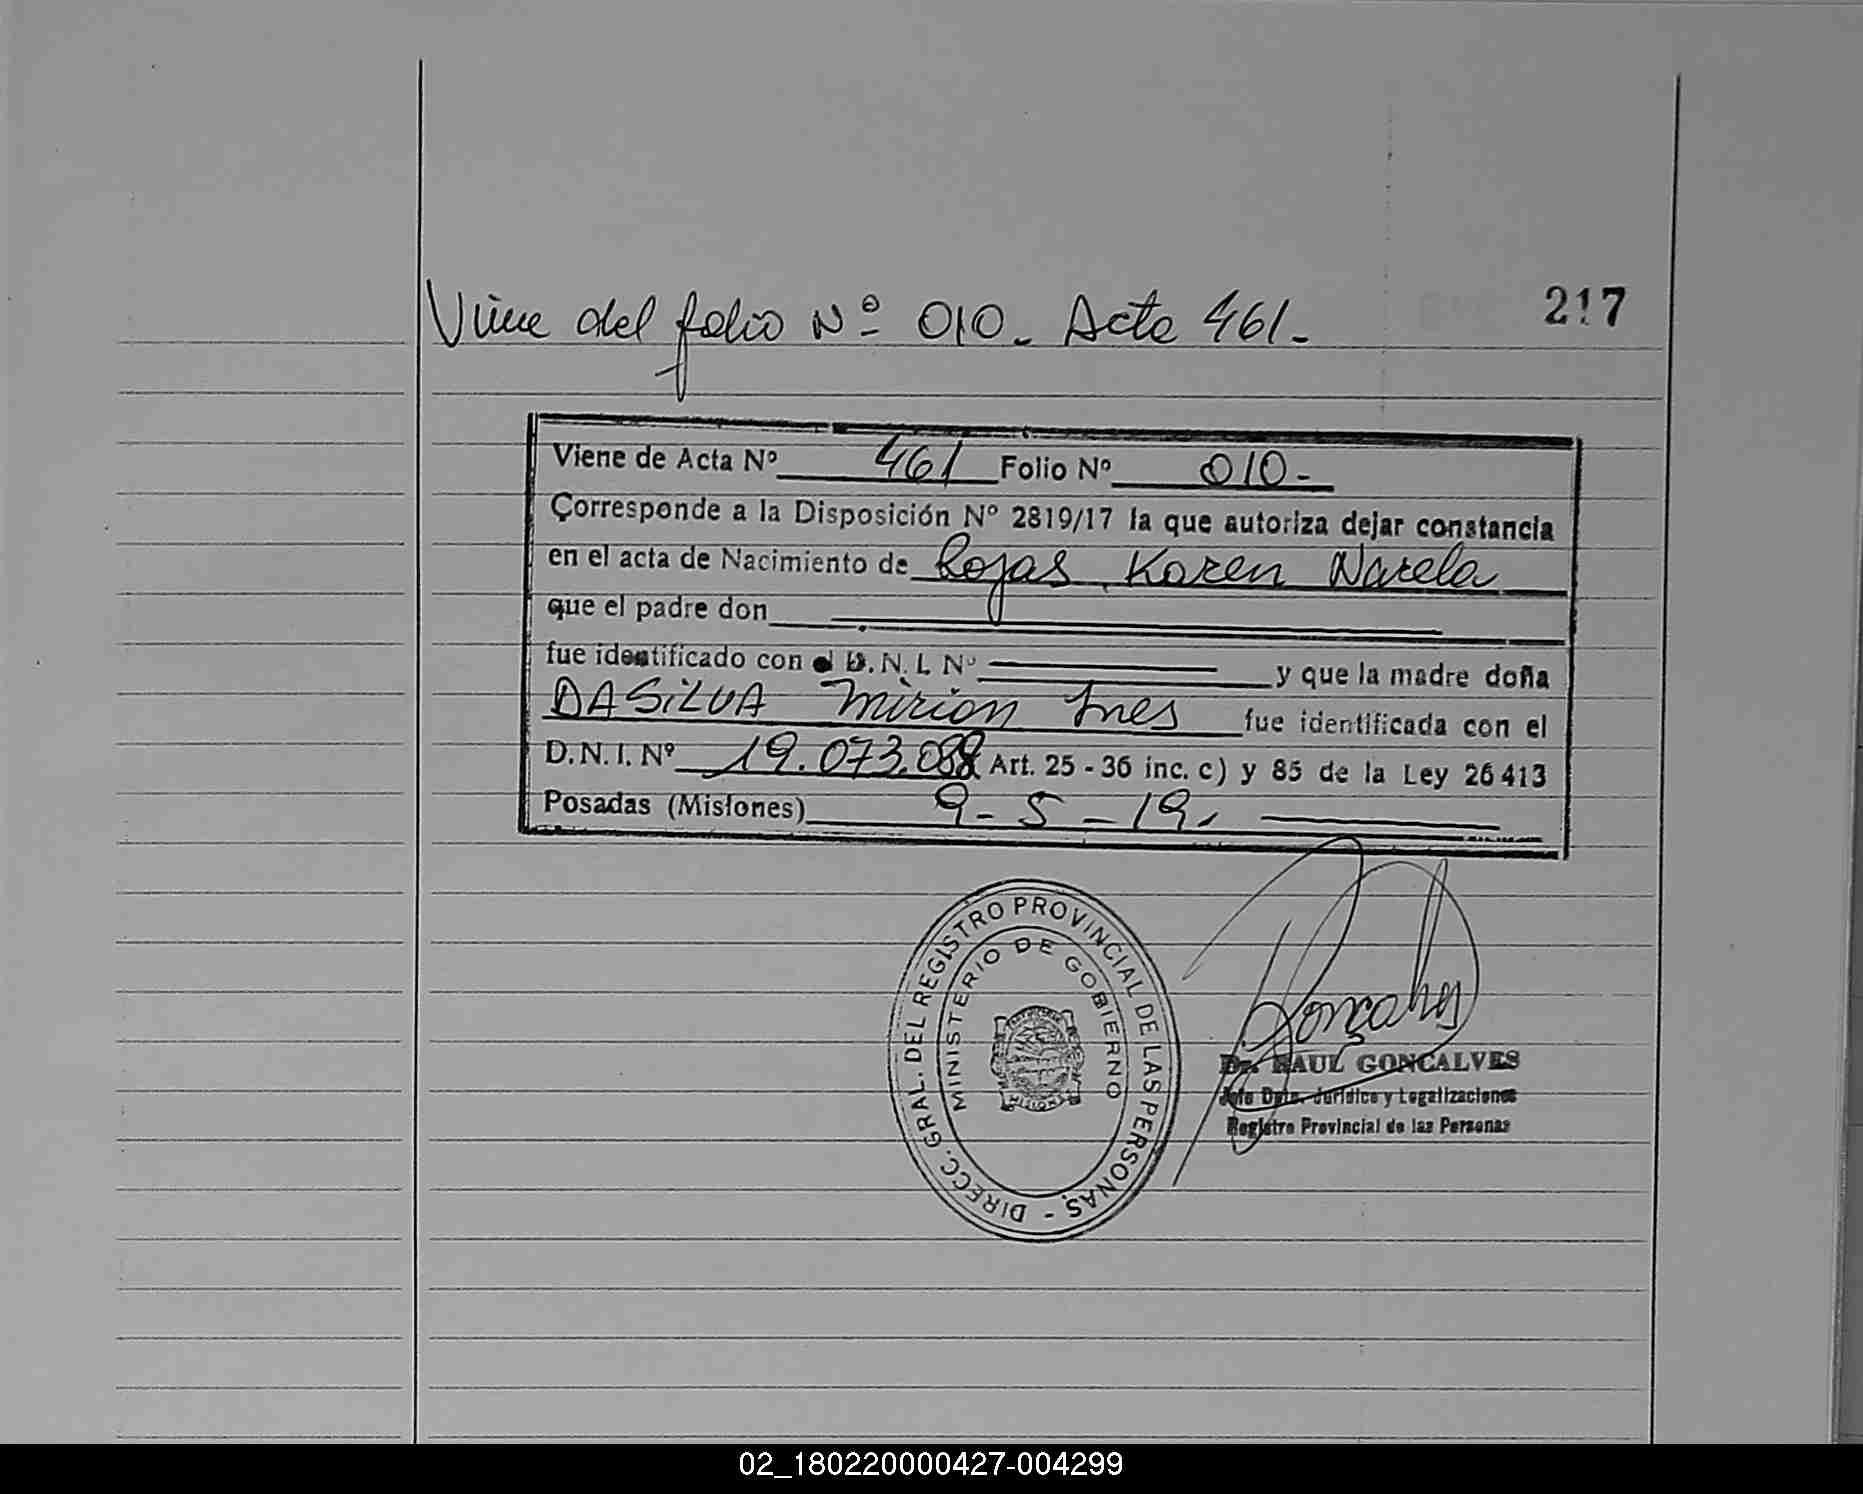 Viene del folio Nº 010. Acta 461.-
217
Viene de Acta Nº 461 Folio Nº 010-
Corresponde a la Disposición Nº 2819/17 la que autoriza dejar constancia
en el acta de Nacimiento de Rojas, Karen Narela
que el padre don
fue identificado con el D.N.I. Nº y que la madre doña
DASILVA Mirian Ines fue identificada con el
D.N.I. Nº 19.073.088 Art. 25 - 36 inc. c) y 85 de la Ley 26413
Posadas (Misiones) 9-5-19.
DIRECC. GRAL. DEL REGISTRO PROVINCIAL DE LAS PERSONAS -
MINISTERIO DE GOBIERNO
MISIONES
Gonçalves
Dr. RAUL GONCALVES
Jefe Dpto. Jurídico y Legalizaciones
Registro Provincial de las Personas
02_180220000427-004299